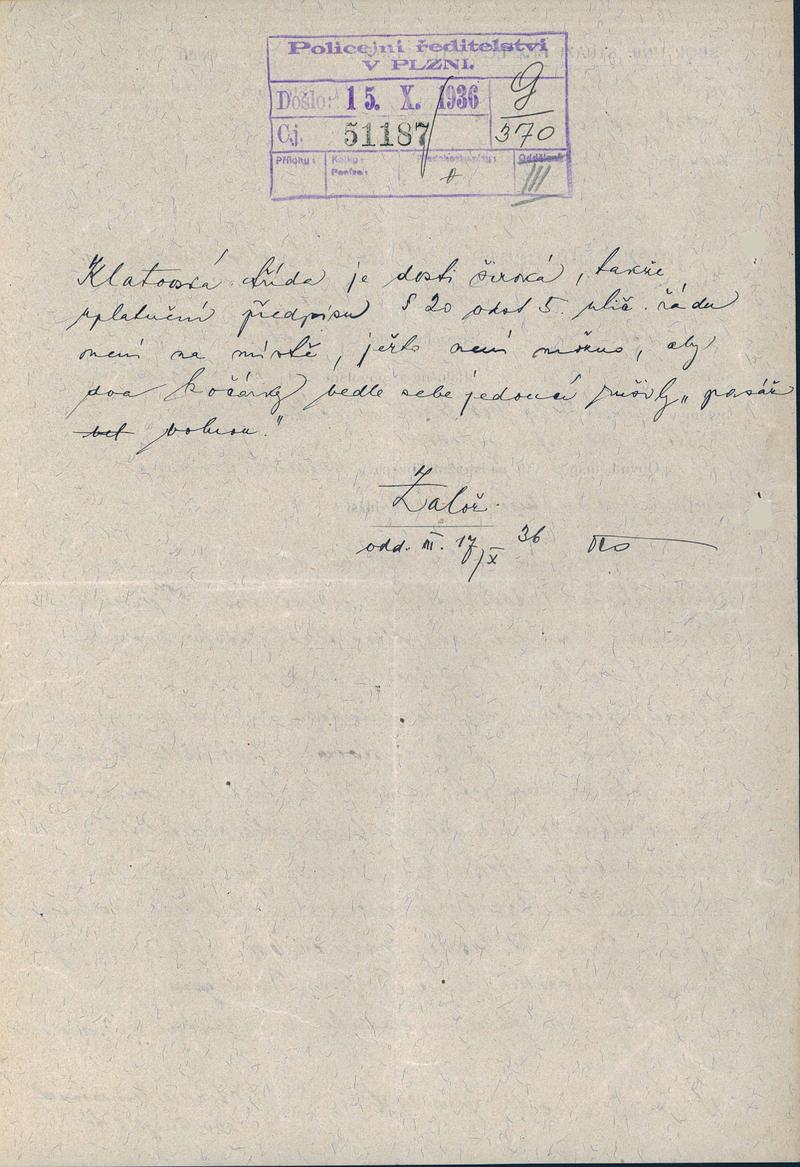 Policejní ředitelství
V PLZNI.
Došlo: 15. X. 1936
9
Čj. 51187
370
Přílohy: Kolky: Peníze: Oddělení:
III
Klatovská třída je dosti široká, takže
uplatnění předpisu § 20 odst 5. ulič. řádu
není na místě, ježto není možno, aby
dva kočárky vedle sebe jedoucí rušily „pasáž
volnou."
Založ.
odd. III. 17/X 36